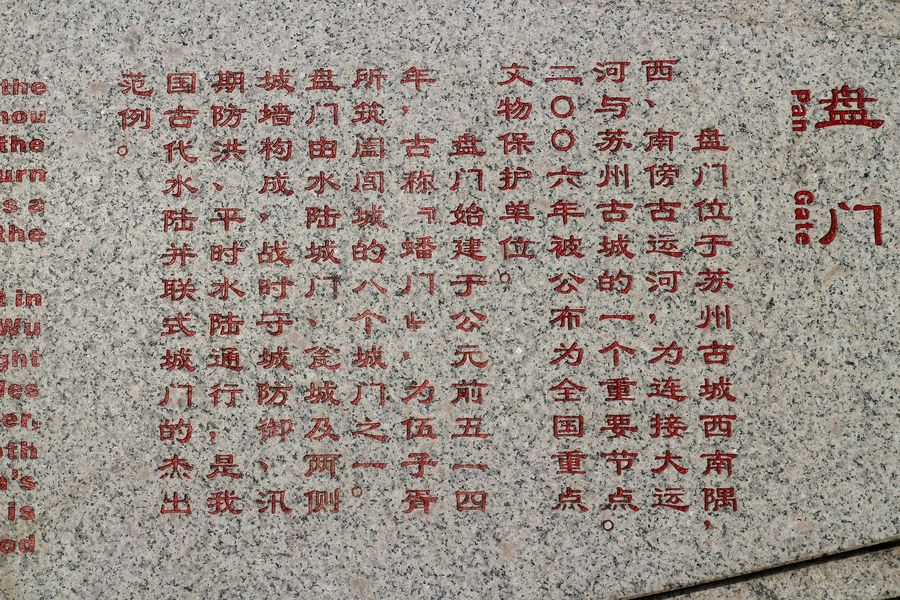 盘门
Pan Gate
盘门位于苏州古城西南隅，
西、南傍古运河，为连接大运
河与苏州古城的一个重要节点。
二〇〇六年被公布为全国重点
文物保护单位。
盘门始建于公元前五一四
年，古称『蟠门』，为伍子胥
所筑阖闾城的八个城门之一。
盘门由水陆城门、瓮城及两侧
城墙构成，战时守城防御、汛
期防洪、平时水陆通行，是我
国古代水陆并联式城门的杰出
范例。
the
the
s a
the
in
Wu
is